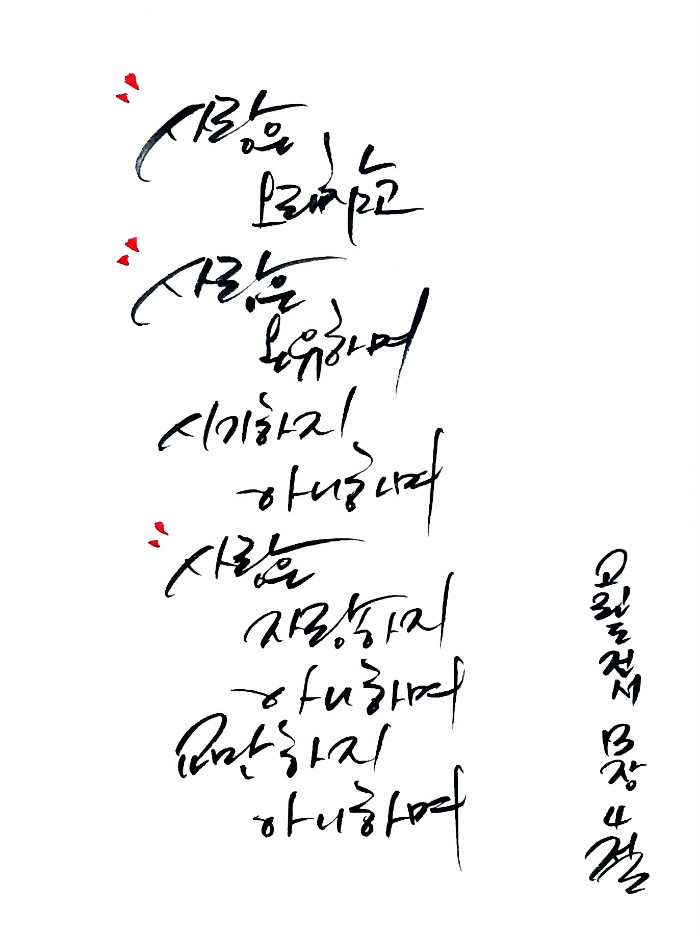 사랑은
오래참고
사랑은
온유하며
시기하지
아니하며
사랑은
자랑하지
아니하며
교만하지
아니하며
고린도전서 13장 4절